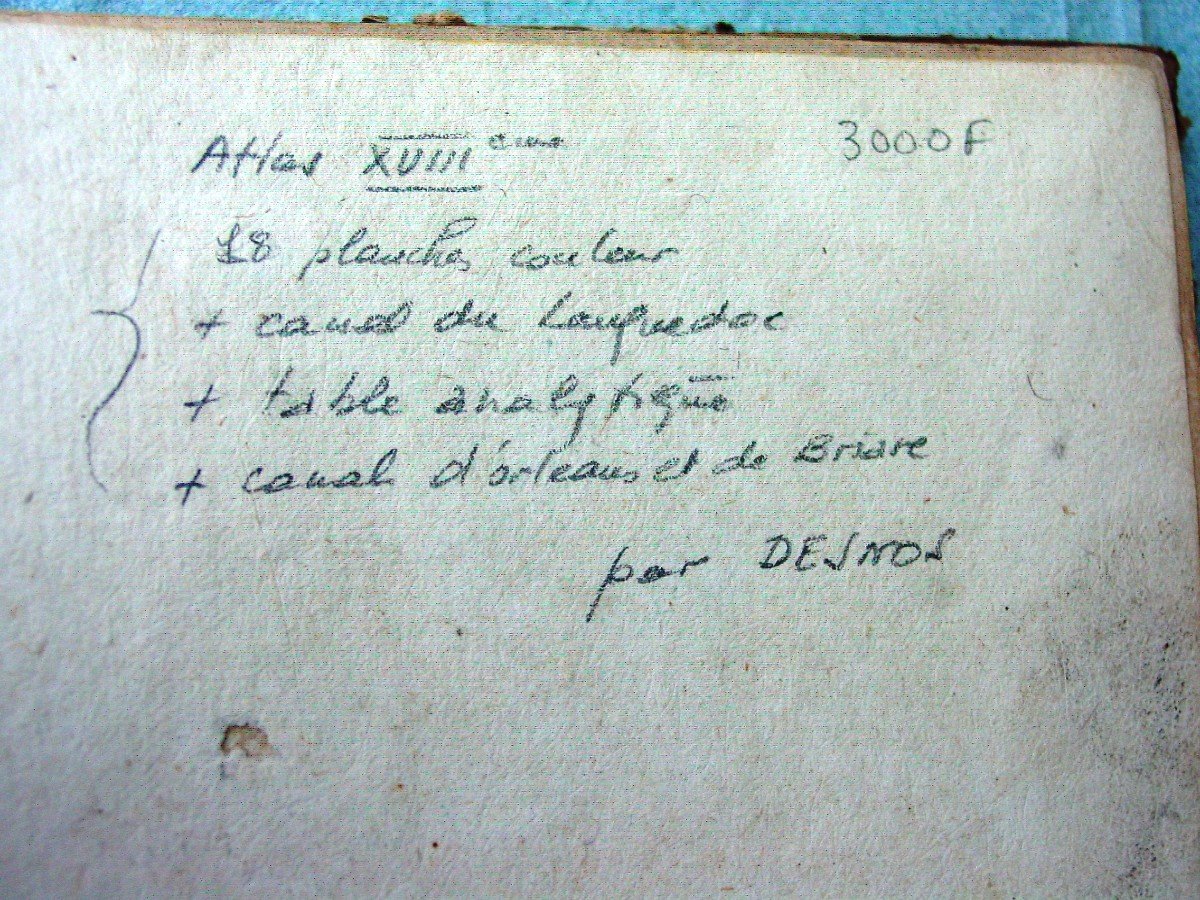 Atlas XVIIIeme 3000F
18 planches couleur
+ canal du Languedoc
+ table analytique
+ canals d'orleans et de Briare
par DESNOS